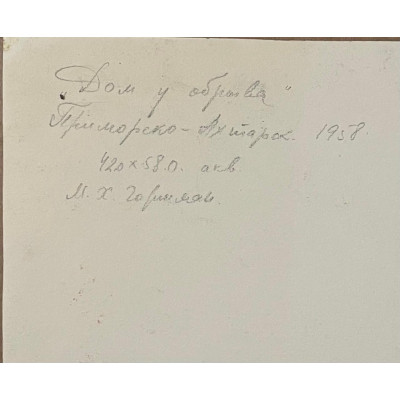 „Дом у обрыва"
Приморско-Ахтарск. 1958.
420×580. акв.
М. Х. Горшман.